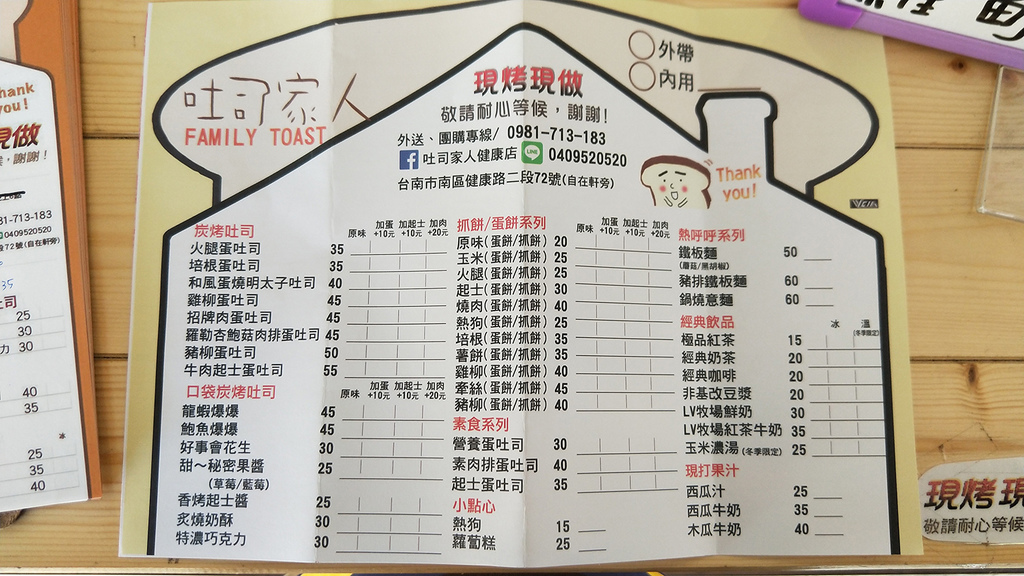 吐司家人
FAMILY TOAST
現烤現做
敬請耐心等候，謝謝!
外送、團購專線/ 0981-713-183
吐司家人健康店 LINE 0409520520
台南市南區健康路二段72號(自在軒旁)
○外帶
○內用
Thank
you!
炭烤吐司 原味 加蛋+10元 加起士+10元 加肉+20元
火腿蛋吐司 35
培根蛋吐司 35
和風蛋燒明太子吐司 40
雞柳蛋吐司 45
招牌肉蛋吐司 45
羅勒杏鮑菇肉排蛋吐司 45
豬柳蛋吐司 50
牛肉起士蛋吐司 55
口袋炭烤吐司 原味 加蛋+10元 加起士+10元 加肉+20元
龍蝦爆爆 45
鮑魚爆爆 45
好事會花生 30
甜～秘密果醬 25
(草莓/藍莓)
香烤起士醬 25
炙燒奶酥 30
特濃巧克力 30
抓餅/蛋餅系列 原味 加蛋+10元 加起士+10元 加肉+20元
原味(蛋餅/抓餅) 20
玉米(蛋餅/抓餅) 25
火腿(蛋餅/抓餅) 25
起士(蛋餅/抓餅) 30
燒肉(蛋餅/抓餅) 40
熱狗(蛋餅/抓餅) 25
培根(蛋餅/抓餅) 35
薯餅(蛋餅/抓餅) 35
雞柳(蛋餅/抓餅) 40
牽絲(蛋餅/抓餅) 45
豬柳(蛋餅/抓餅) 40
素食系列
營養蛋吐司 30
素肉排蛋吐司 40
起士蛋吐司 35
小點心
熱狗 15
蘿蔔糕 25
熱呼呼系列
鐵板麵 50
(蘑菇/黑胡椒)
豬排鐵板麵 60
鍋燒意麵 60
經典飲品 冰 溫(冬季限定)
極品紅茶 15
經典奶茶 20
經典咖啡 20
非基改豆漿 20
LV牧場鮮奶 30
LV牧場紅茶牛奶 35
玉米濃湯(冬季限定) 25
現打果汁
西瓜汁 25
西瓜牛奶 35
木瓜牛奶 40
hank
you!
現做
候，謝謝!
81-713-183
0409520520
段72號(自在軒旁)
35
司
25
30
力 30
40
35
冰
25
35
40
現烤現
敬請耐心等候